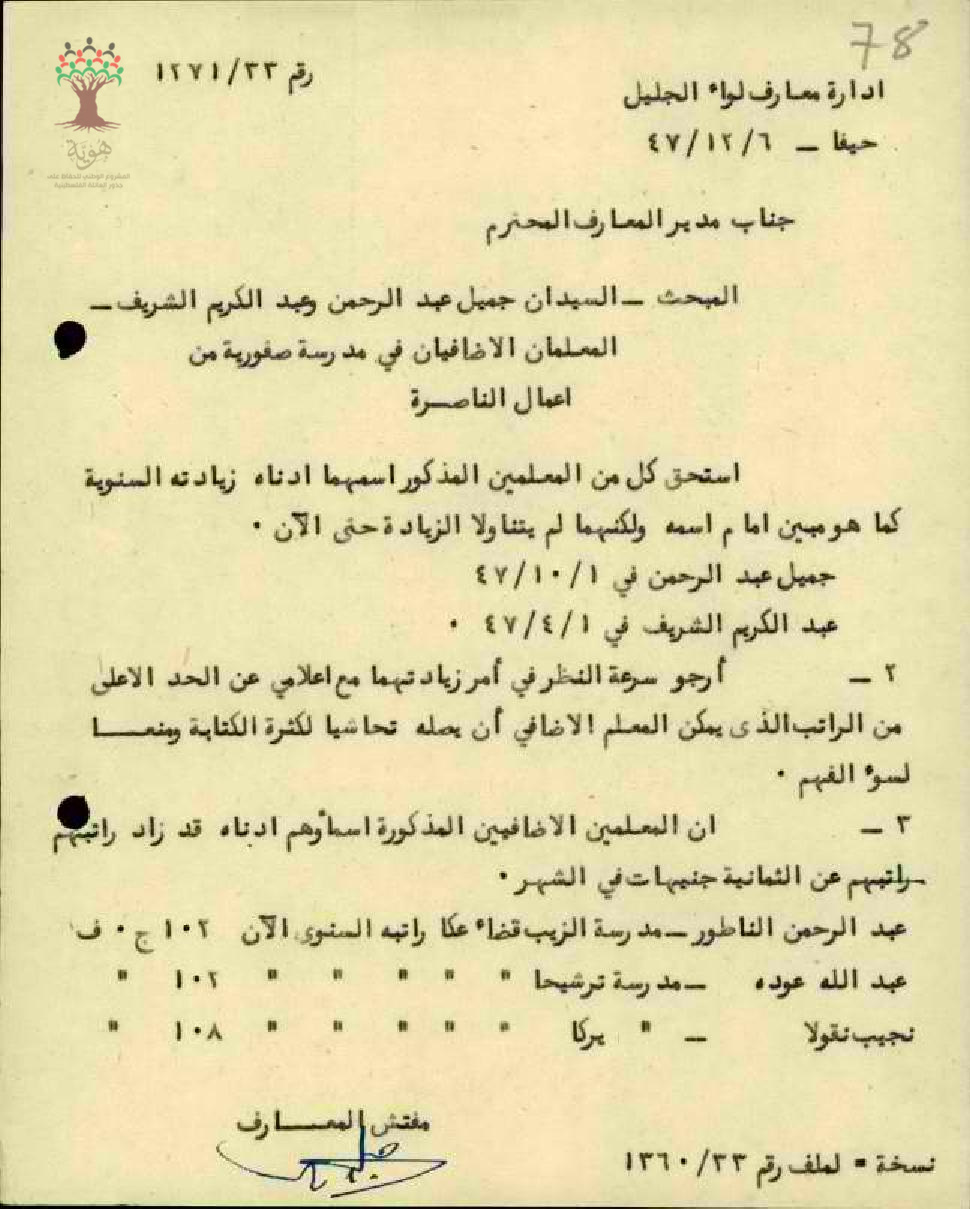 78
رقم ١٢٧١/٣٣
ادارة معارف لواء الجليل
حيفا ـ ٤٧/١٢/٦
هوية
المشروع الوطني للحفاظ على
جذور العائلة الفلسطينية
جناب مدير المعارف المحترم
المبحث ـ السيدان جميل عبد الرحمن وعبد الكريم الشريف ـ
المعلمان الاضافيان في مدرسة صفورية من
اعمال الناصرة
استحق كل من المعلمين المذكور اسمهما ادناه زيادته السنوية
كما هو مبين امام اسمه ولكنهما لم يتناولا الزيادة حتى الآن ٠
جميل عبد الرحمن في ٤٧/١٠/١
عبد الكريم الشريف في ٤٧/٤/١ ٠
٢ ـ أرجو سرعة النظر في أمر زيادتهما مع اعلامي عن الحد الاعلى
من الراتب الذى يمكن المعلم الاضافي أن يصله تحاشيا لكثرة الكتابة ومنعا
لسوء الفهم ٠
٣ ـ ان المعلمين الاضافيين المذكورة اسماؤهم ادناه قد زاد راتبهم
راتبهم عن الثمانية جنيهات في الشهر ٠
عبد الرحمن الناطور ـ مدرسة الزيب قضاء عكا راتبه السنوى الآن ١٠٢ ج ٠ ف
عبد الله عوده ـ مدرسة ترشيحا " " " " " ١٠٢ "
نجيب نقولا ـ " يركا " " " " " ١٠٨ "
مفتش المعارف
نسخة = لملف رقم ١٣٦٠/٣٣